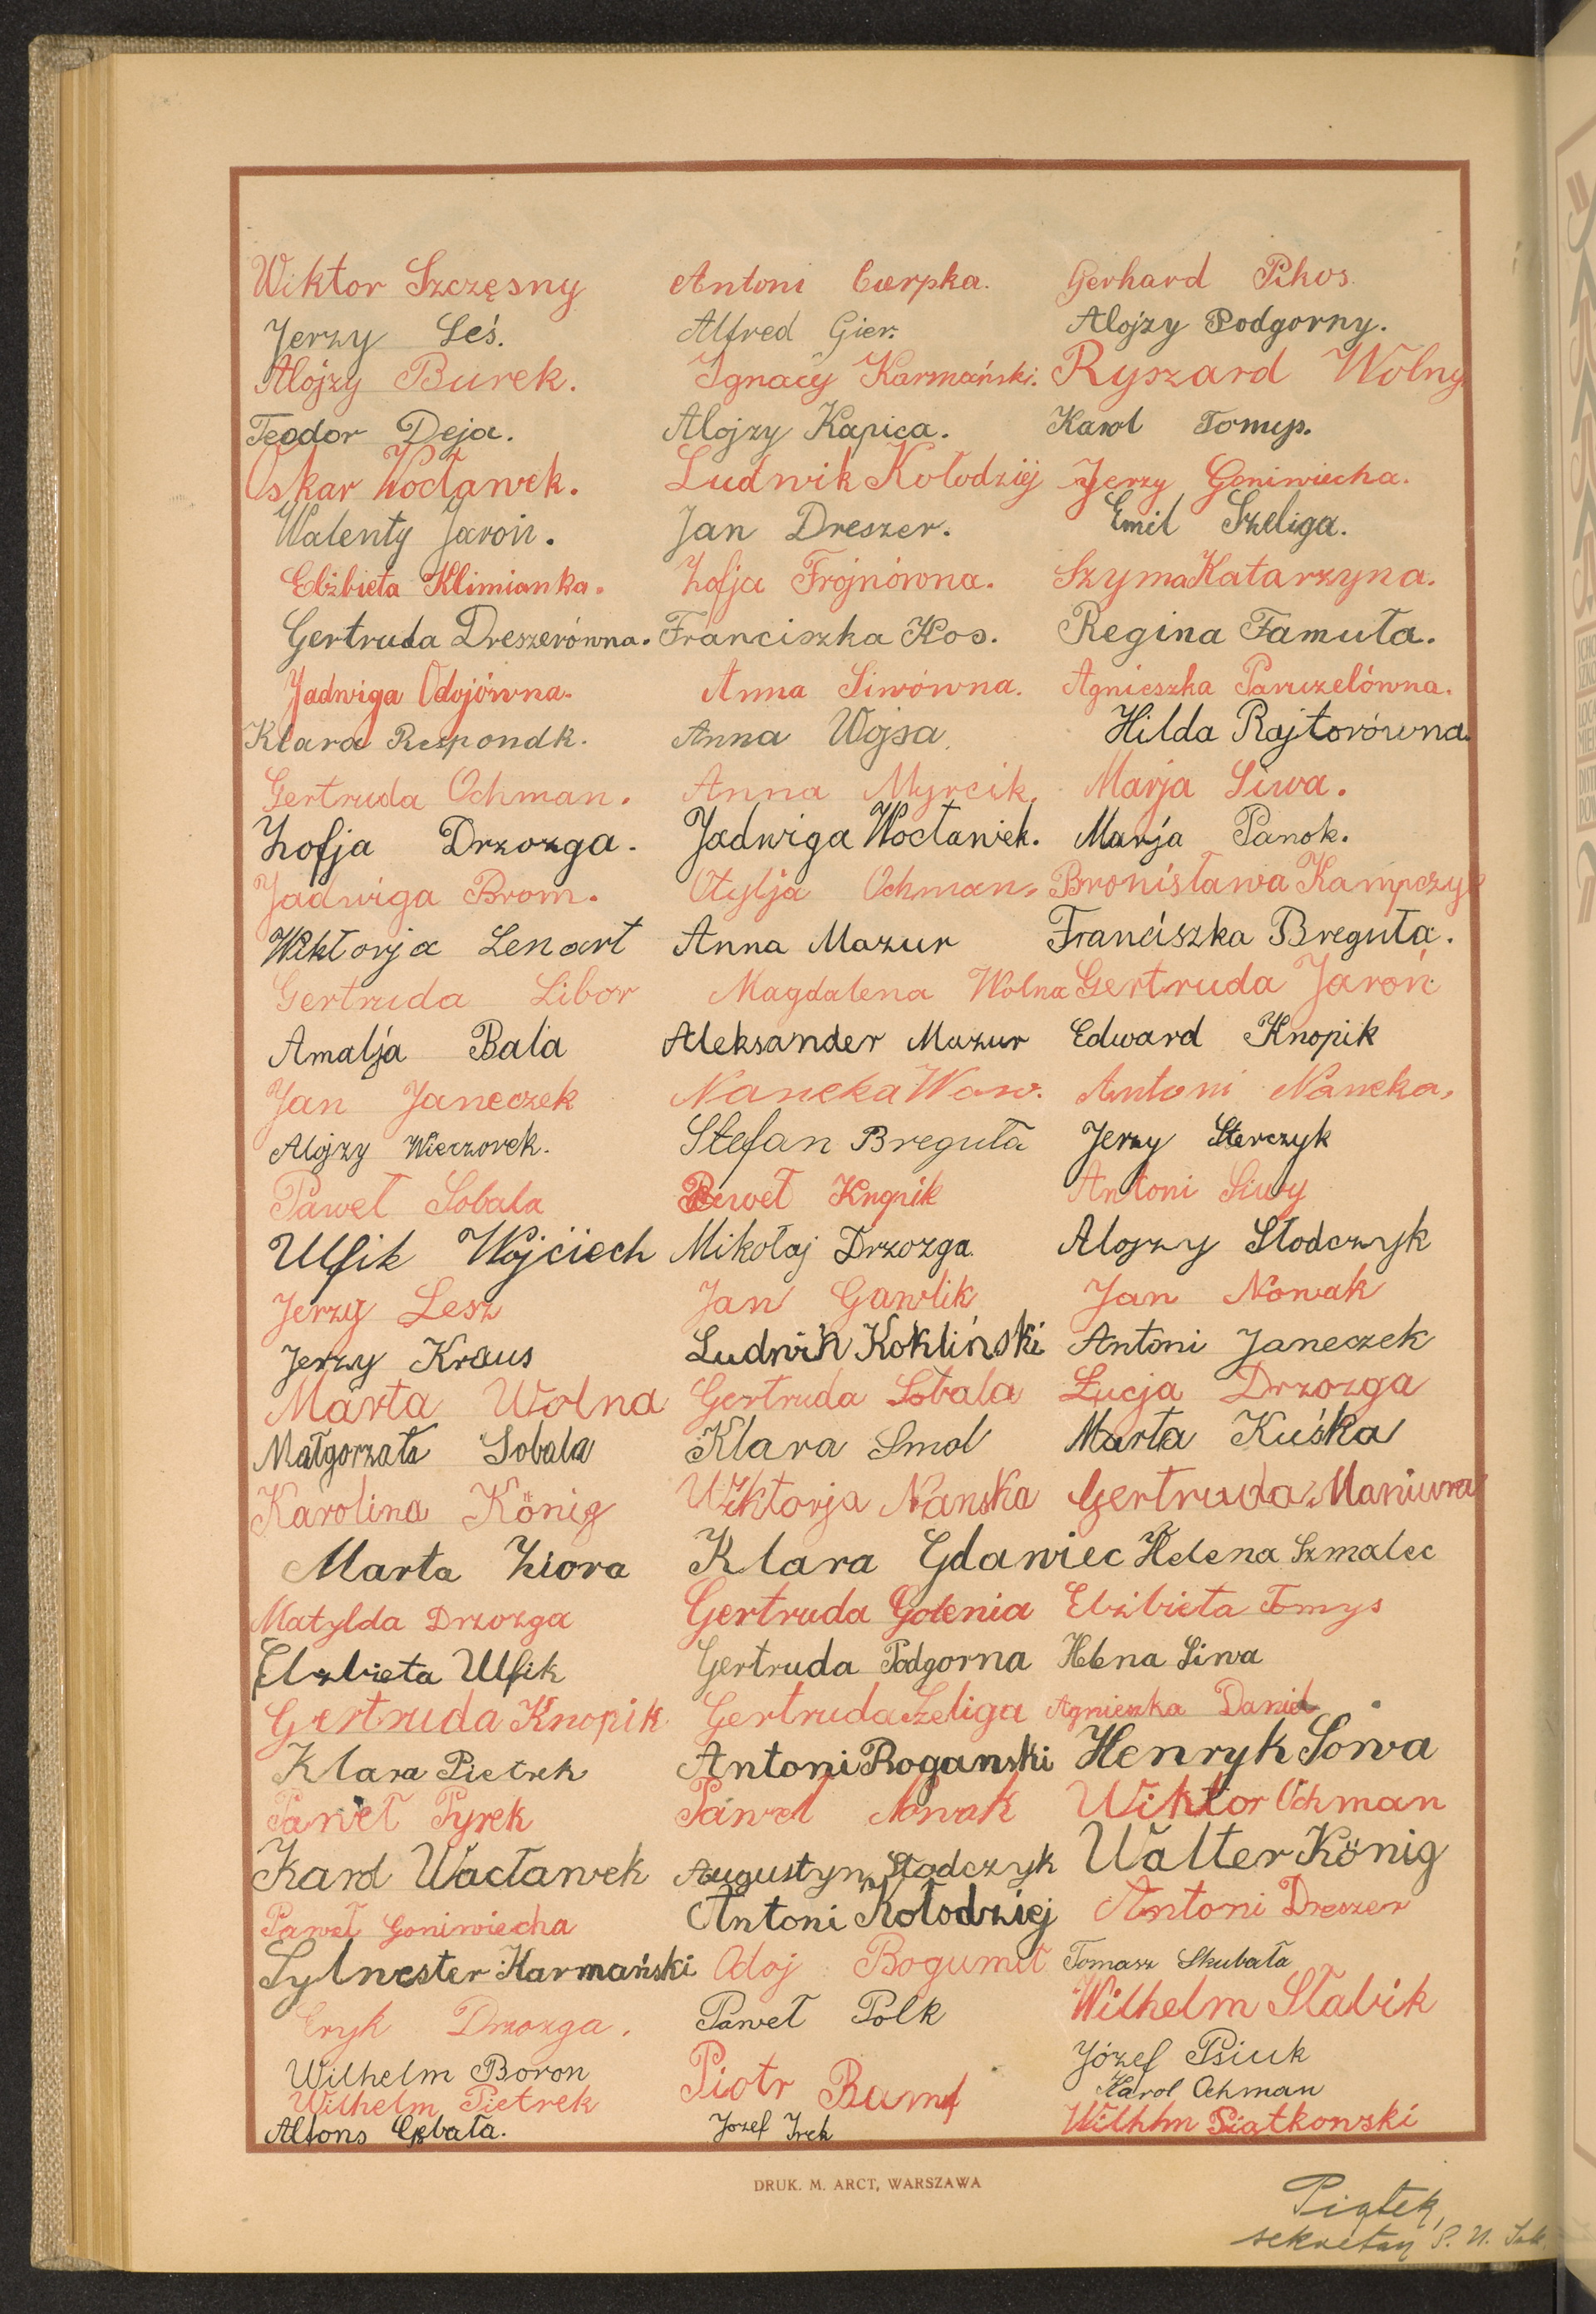 Wiktor Szczęsny Antoni Cierpka. Gerhard Pikos.
Jerzy Leś. Alfred Gier. Alojzy Podgorny.
Alojzy Burek. Ignacy Karmański. Ryszard Wolny
Teodor Deja. Alojzy Kapica. Karol Tomys.
Oskar Wocławek. Ludwik Kołodziej Jerzy Goniwiecha.
Walenty Jaroń. Jan Dreszer. Emil Szeliga.
Elżbieta Klimianka. Zofja Frojnówna. Szyma Katarzyna.
Gertruda Dreszerówna. Franciszka Kos. Regina Famuła.
Jadwiga Odojówna. Anna Siwówna. Agnieszka Pawuzelówna.
Klara Respondk. Anna Wojsa. Hilda Rajtorówna.
Gertruda Ochman. Anna Myrcik. Marja Siwa.
Zofja Drzozga. Jadwiga Wocławek. Marja Panok.
Jadwiga Brom. Otylja Ochman. Bronisława Kampczyk
Wiktorja Lenart Anna Mazur Franciszka Breguła.
Gertruda Libor Magdalena Wolna Gertruda Jaroń
Amalja Bala Aleksander Mazur Edward Knopik
Jan Janeczek Naneka Waw. Antoni Naneka.
Alojzy Wieczorek. Stefan Breguła Jerzy Sterczyk
Paweł Sobala Paweł Knopik Antoni Siwy
Ulfik Wojciech Mikołaj Drzozga Alojzy Słodczyk
Jerzy Lesz Jan Gawlik Jan Nowak
Jerzy Kraus Ludwik Kokliński Antoni Janeczek
Marta Wolna Gertruda Sobala Łucja Drzozga
Małgorzata Sobala Klara Smol Marta Kuśka
Karolina König Wiktorja Nanska Gertruda Maniura
Marta Ziora Klara Gdawiec Helena Szmalec
Matylda Drzozga Gertruda Golenia Elżbieta Tomys
Elzbieta Ulfik Gertruda Podgorna Helena Siwa
Gertruda Knopik Gertruda Szeliga Agnieszka Daniel
Klara Pietrek Antoni Roganski Henryk Sowa
Paweł Pyrek Paweł Nowak Wiktor Ochman
Karol Wacławek Augustyn Słodczyk Walter König
Paweł Goniwiecha Antoni Kołodziej Antoni Dreszer
Sylwester Karmański Odoj Bogumił Tomasz Skubała
Eryk Drzozga. Paweł Polk Wilhelm Słabik
Wilhelm Boron Piotr Józef Psiuk
Wilhelm Pietrek Karol Ochman
Alfons Cebała. Jozef Irek Wilhlm Piątkowski
DRUK. M. ARCT, WARSZAWA
Piątek,
sekretarz P. U.